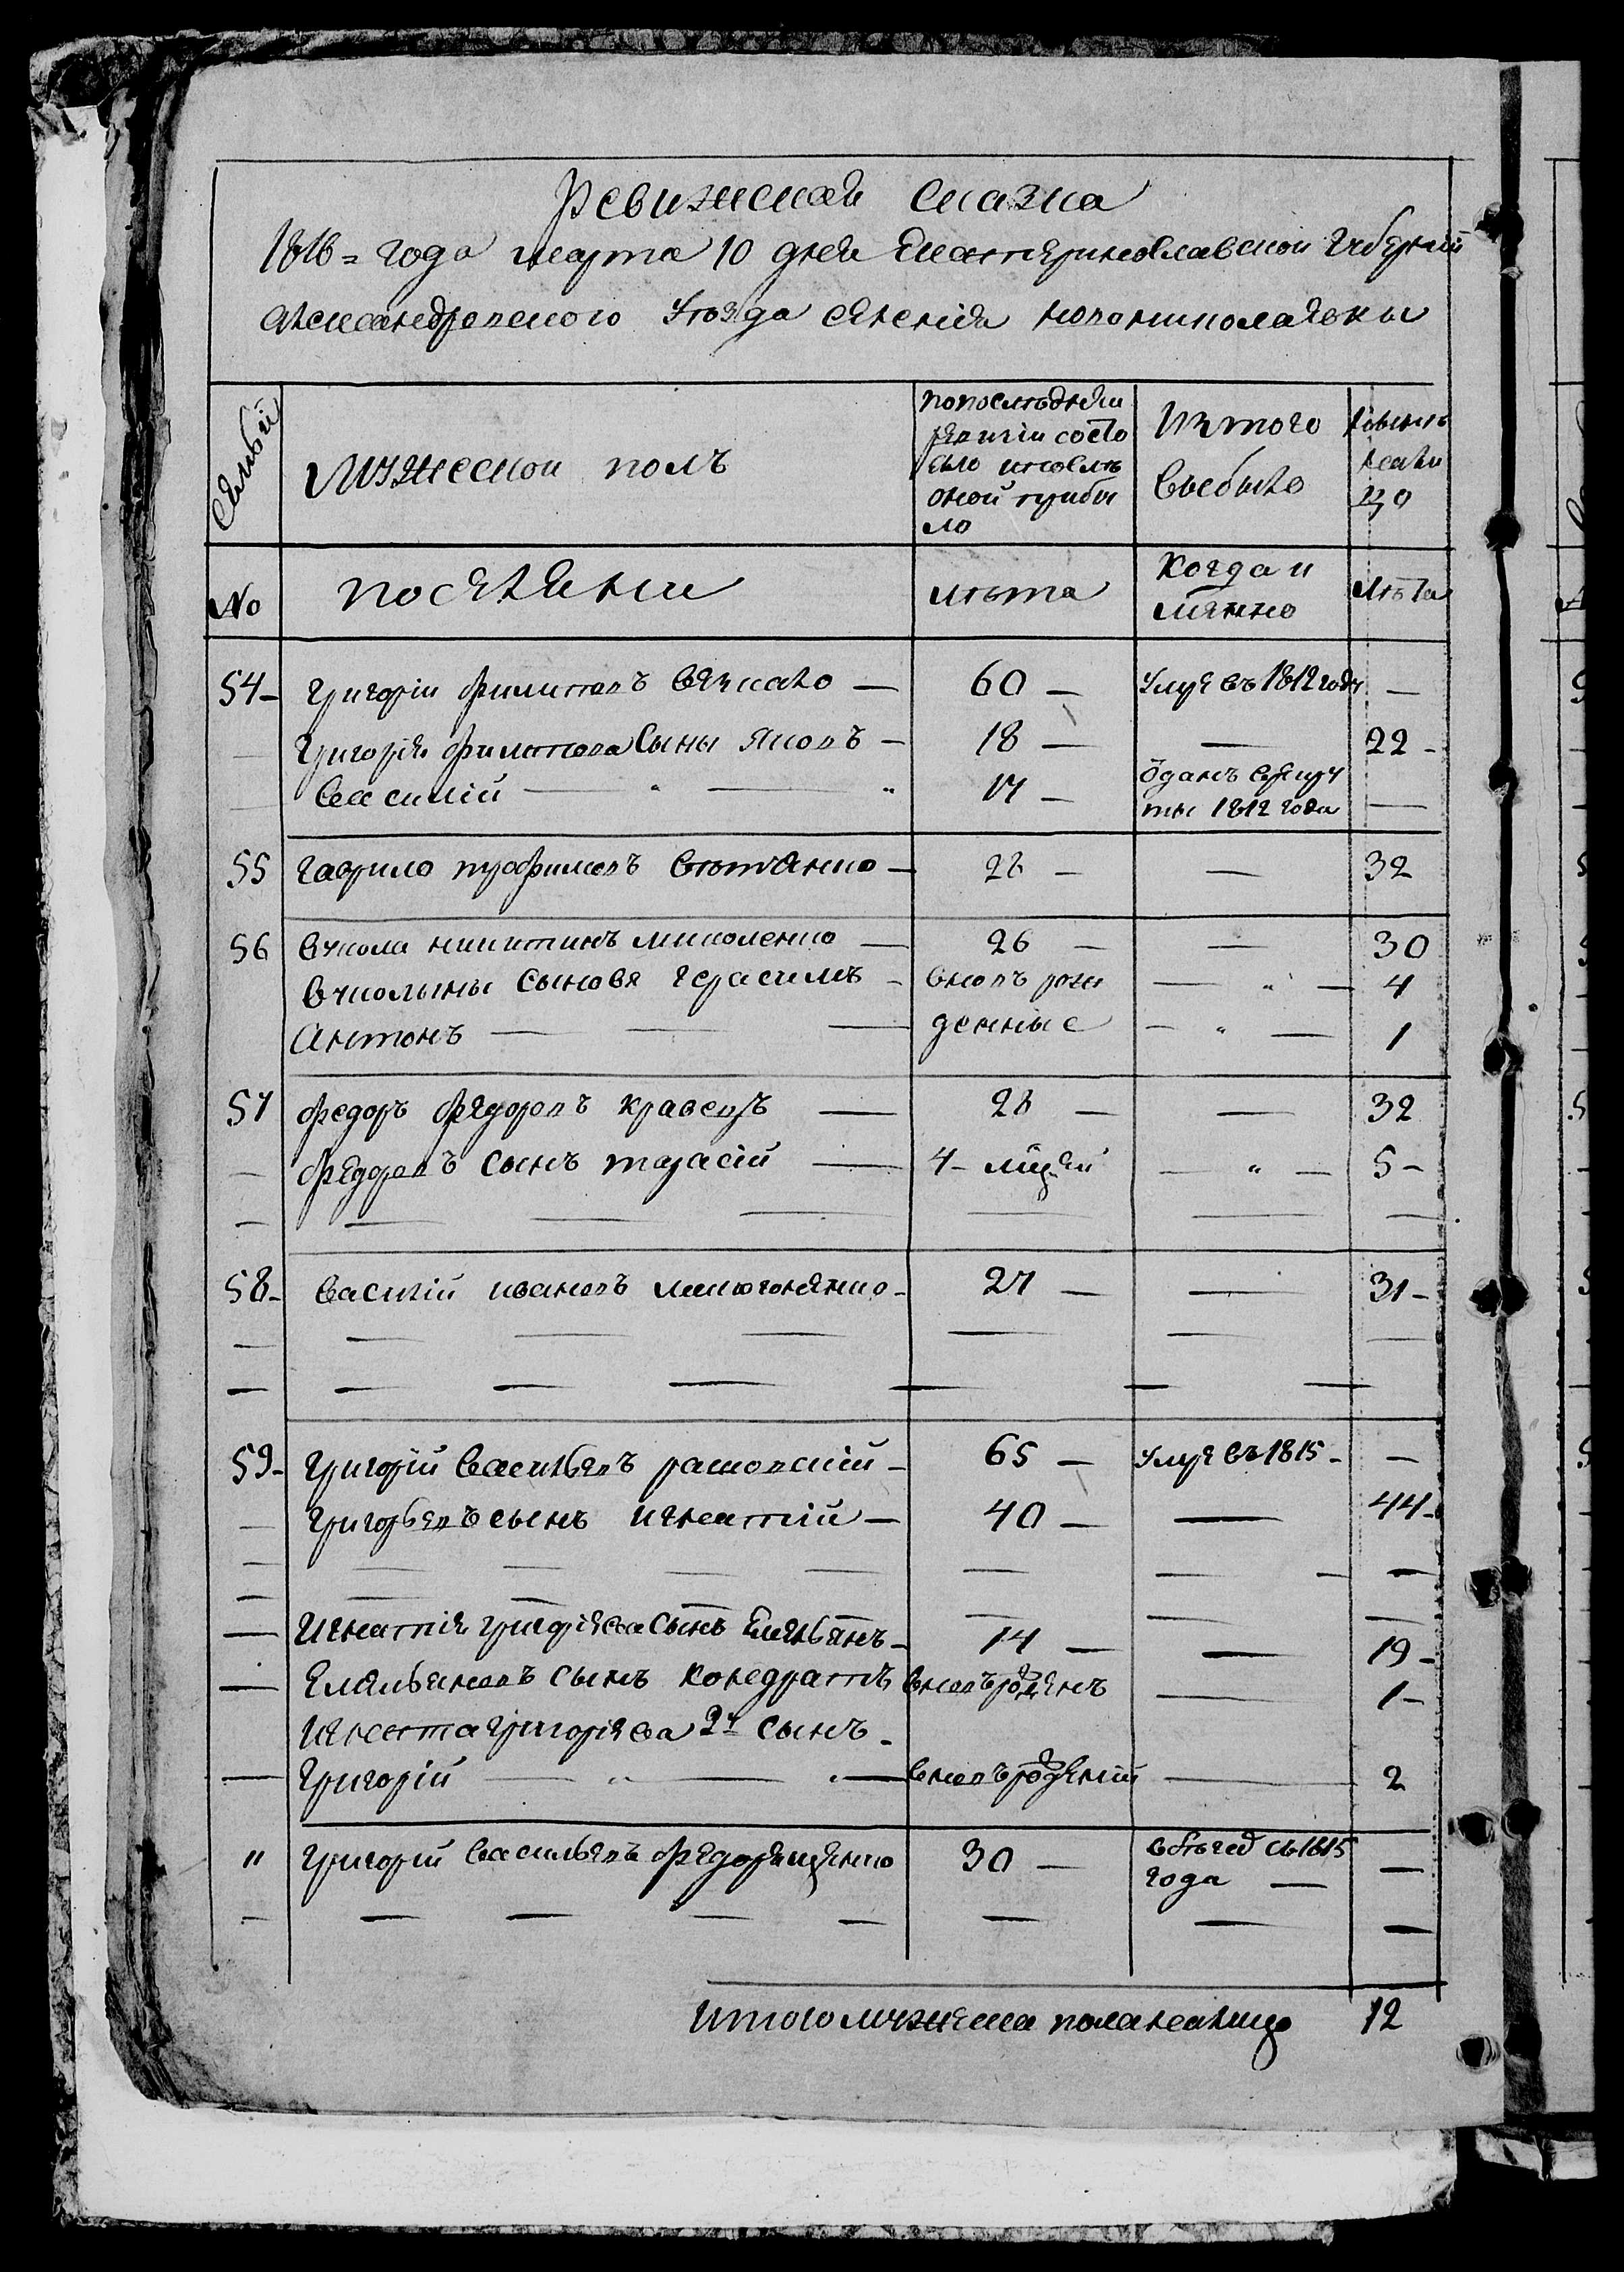 Ревижская сказка
1816 = года марта 10 дня Екатеринославской Губернии
Александровского Уѣзда селения новониколаевки
Семьи
Мужеской полъ
по последней
ревизии состо
яло и после
оной прибы
ло
Изъ того
выбыло
Ныне
на ли
цо
No
поселяни
лѣта
Когда и
мянно
Лѣта
54- Григорій филиповъ — 60 — Умре въ 1812 году —
— Григорія филипова Сыны Яковъ — 18 — — 22 -
— Василій — " — " 17 — Ѿданъ в рекру
ты 1812 года —
55 Гаврило трофимовъ — 28 — — 32
56 Вукола никитинъ миколенко — 26 — — 30
Вуколыны Сыновя герасимъ - вновъ рож — " — 4
Антонъ — — — денные — " — 1
57 федоръ федоровъ кравецъ — 28 — — 32
— федоровъ сынъ тарасій — 4 - мцей — " — 5 -
— — — — — — —
58- Василій ивановъ - 27 — — 31 -
— — — — — — —
— — — — — — —
59- Григорій Васильевъ рашовскій - 65 — Умре въ 1815 - —
— Григорьевъ сынъ игнатій — 40 — — 44 -
— — — — — — — —
— — — — — — —
— Игнатія григорієва Сынъ Емельянъ - 14 — — 19 -
— Емельяновъ сынъ кондратъ вновъ рожденъ — 1 -
Игната григориева 2й сынъ -
— Григорій — " — " — вновъ рожденій — 2
" Григорий Васильевъ федорищенко 30 — в бѣгах съ 1815
года — —
— — — — — — — —
Итого мужеска пола налицо 12